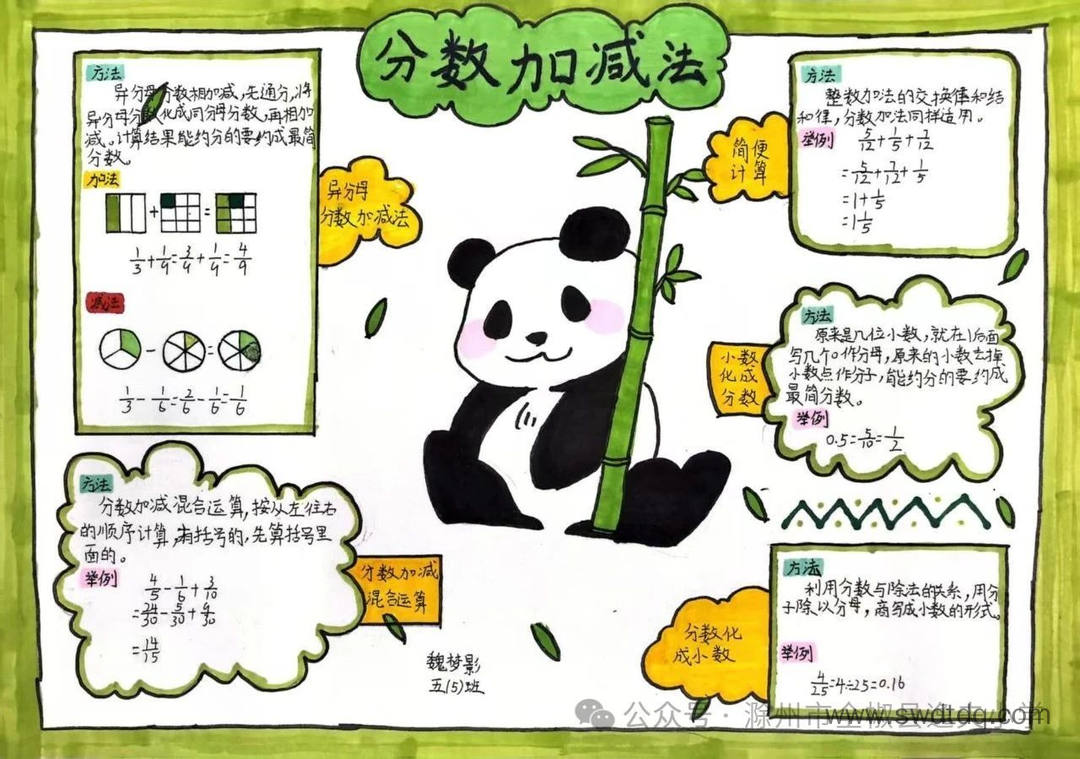 分数加减法
方法
异分母分数相加减,先通分,将
异分母分数化成同分母分数,再相加
减。计算结果能约分的要约成最简
分数。
加法
+ =
1/3+1/9=3/9+1/9=4/9
减法
- =
1/3-1/6=2/6-1/6=1/6
异分母
分数加减法
方法
分数加减混合运算,按从左往右
的顺序计算,有括号的,先算括号里
面的。
举例
4/5-1/6+3/10
=24/30-5/30+9/30
=14/15
分数加减
混合运算
魏梦影
五(5)班
简便
计算
方法
整数加法的交换律和结
和律,分数加法同样适用。
举例 5/12+1/5+7/12
=5/12+7/12+1/5
=1+1/5
=1 1/5
小数
化成
分数
方法
原来是几位小数,就在1后面
写几个0作分母,原来的小数去掉
小数点作分子,能约分的要约成
最简分数。
举例
0.5=5/10=1/2
分数化
成小数
方法
利用分数与除法的关系,用分
子除以分母,商写成小数的形式。
举例
4/25=4÷25=0.16
公众号·滁州市全椒县
www.swdtdq.com